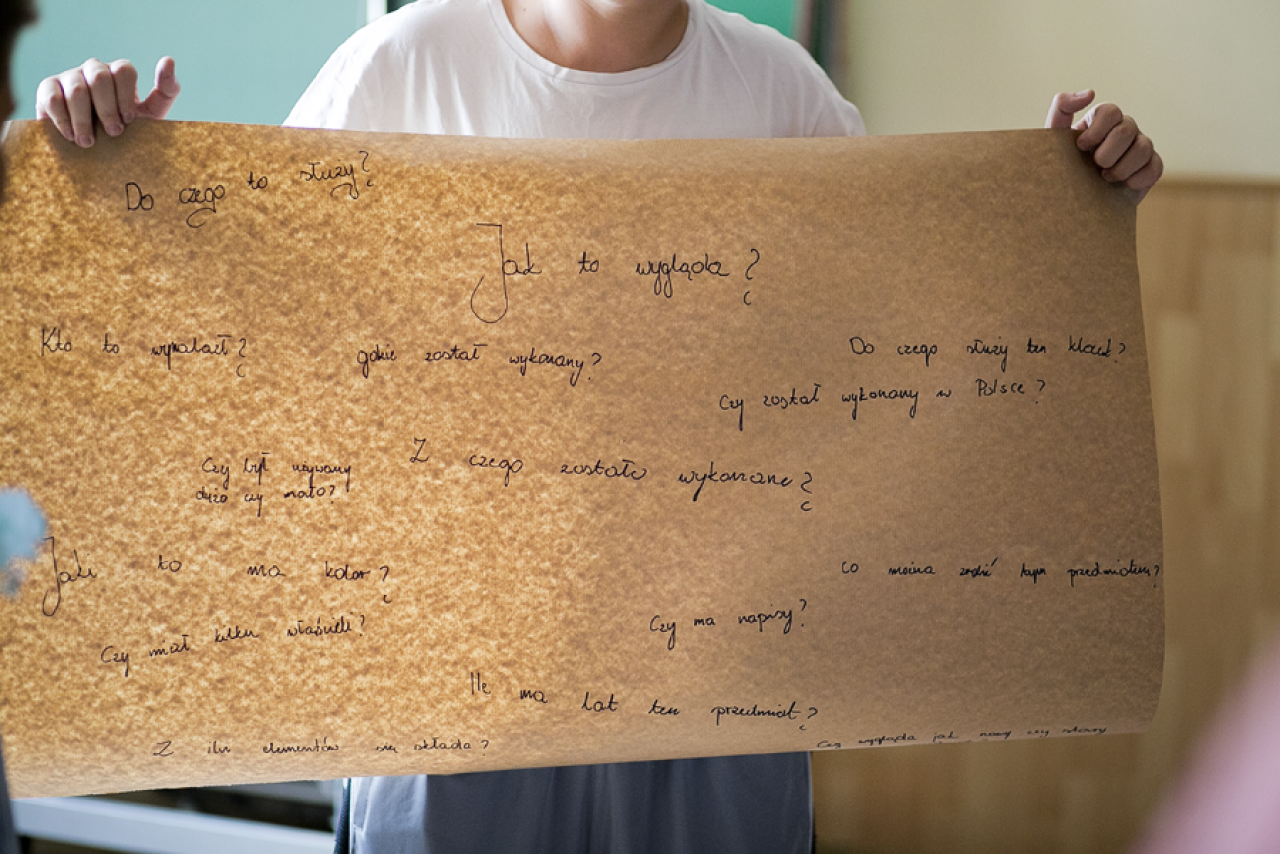 Do czego to służy?
Jak to wygląda?
Kto to wynalazł?
gdzie został wykonany?
Do czego służy ten klocek?
Czy został wykonany w Polsce?
Czy był używany
dużo czy mało?
Z czego zostało wykonane?
Jaki to ma kolor?
co można zrobić tym przedmiotem?
Czy miał kilku właścicieli?
Czy ma napisy?
Ile ma lat ten przedmiot?
Z ilu elementów się składa?
Czy wygląda jak nowy czy stary